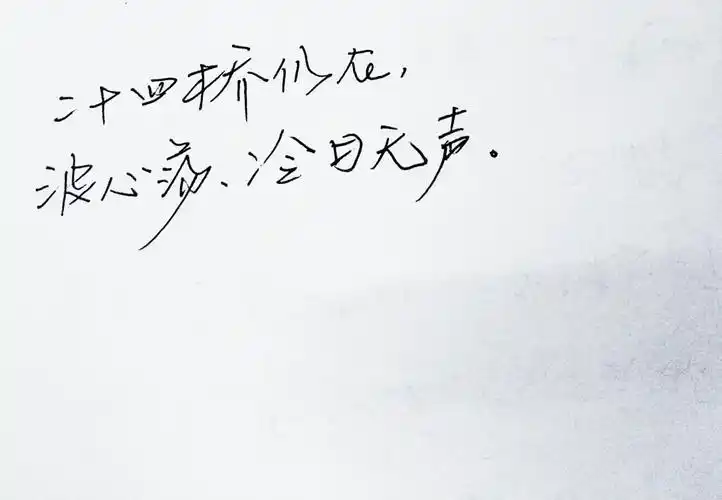 二十四桥仍在，
波心荡、冷日无声。